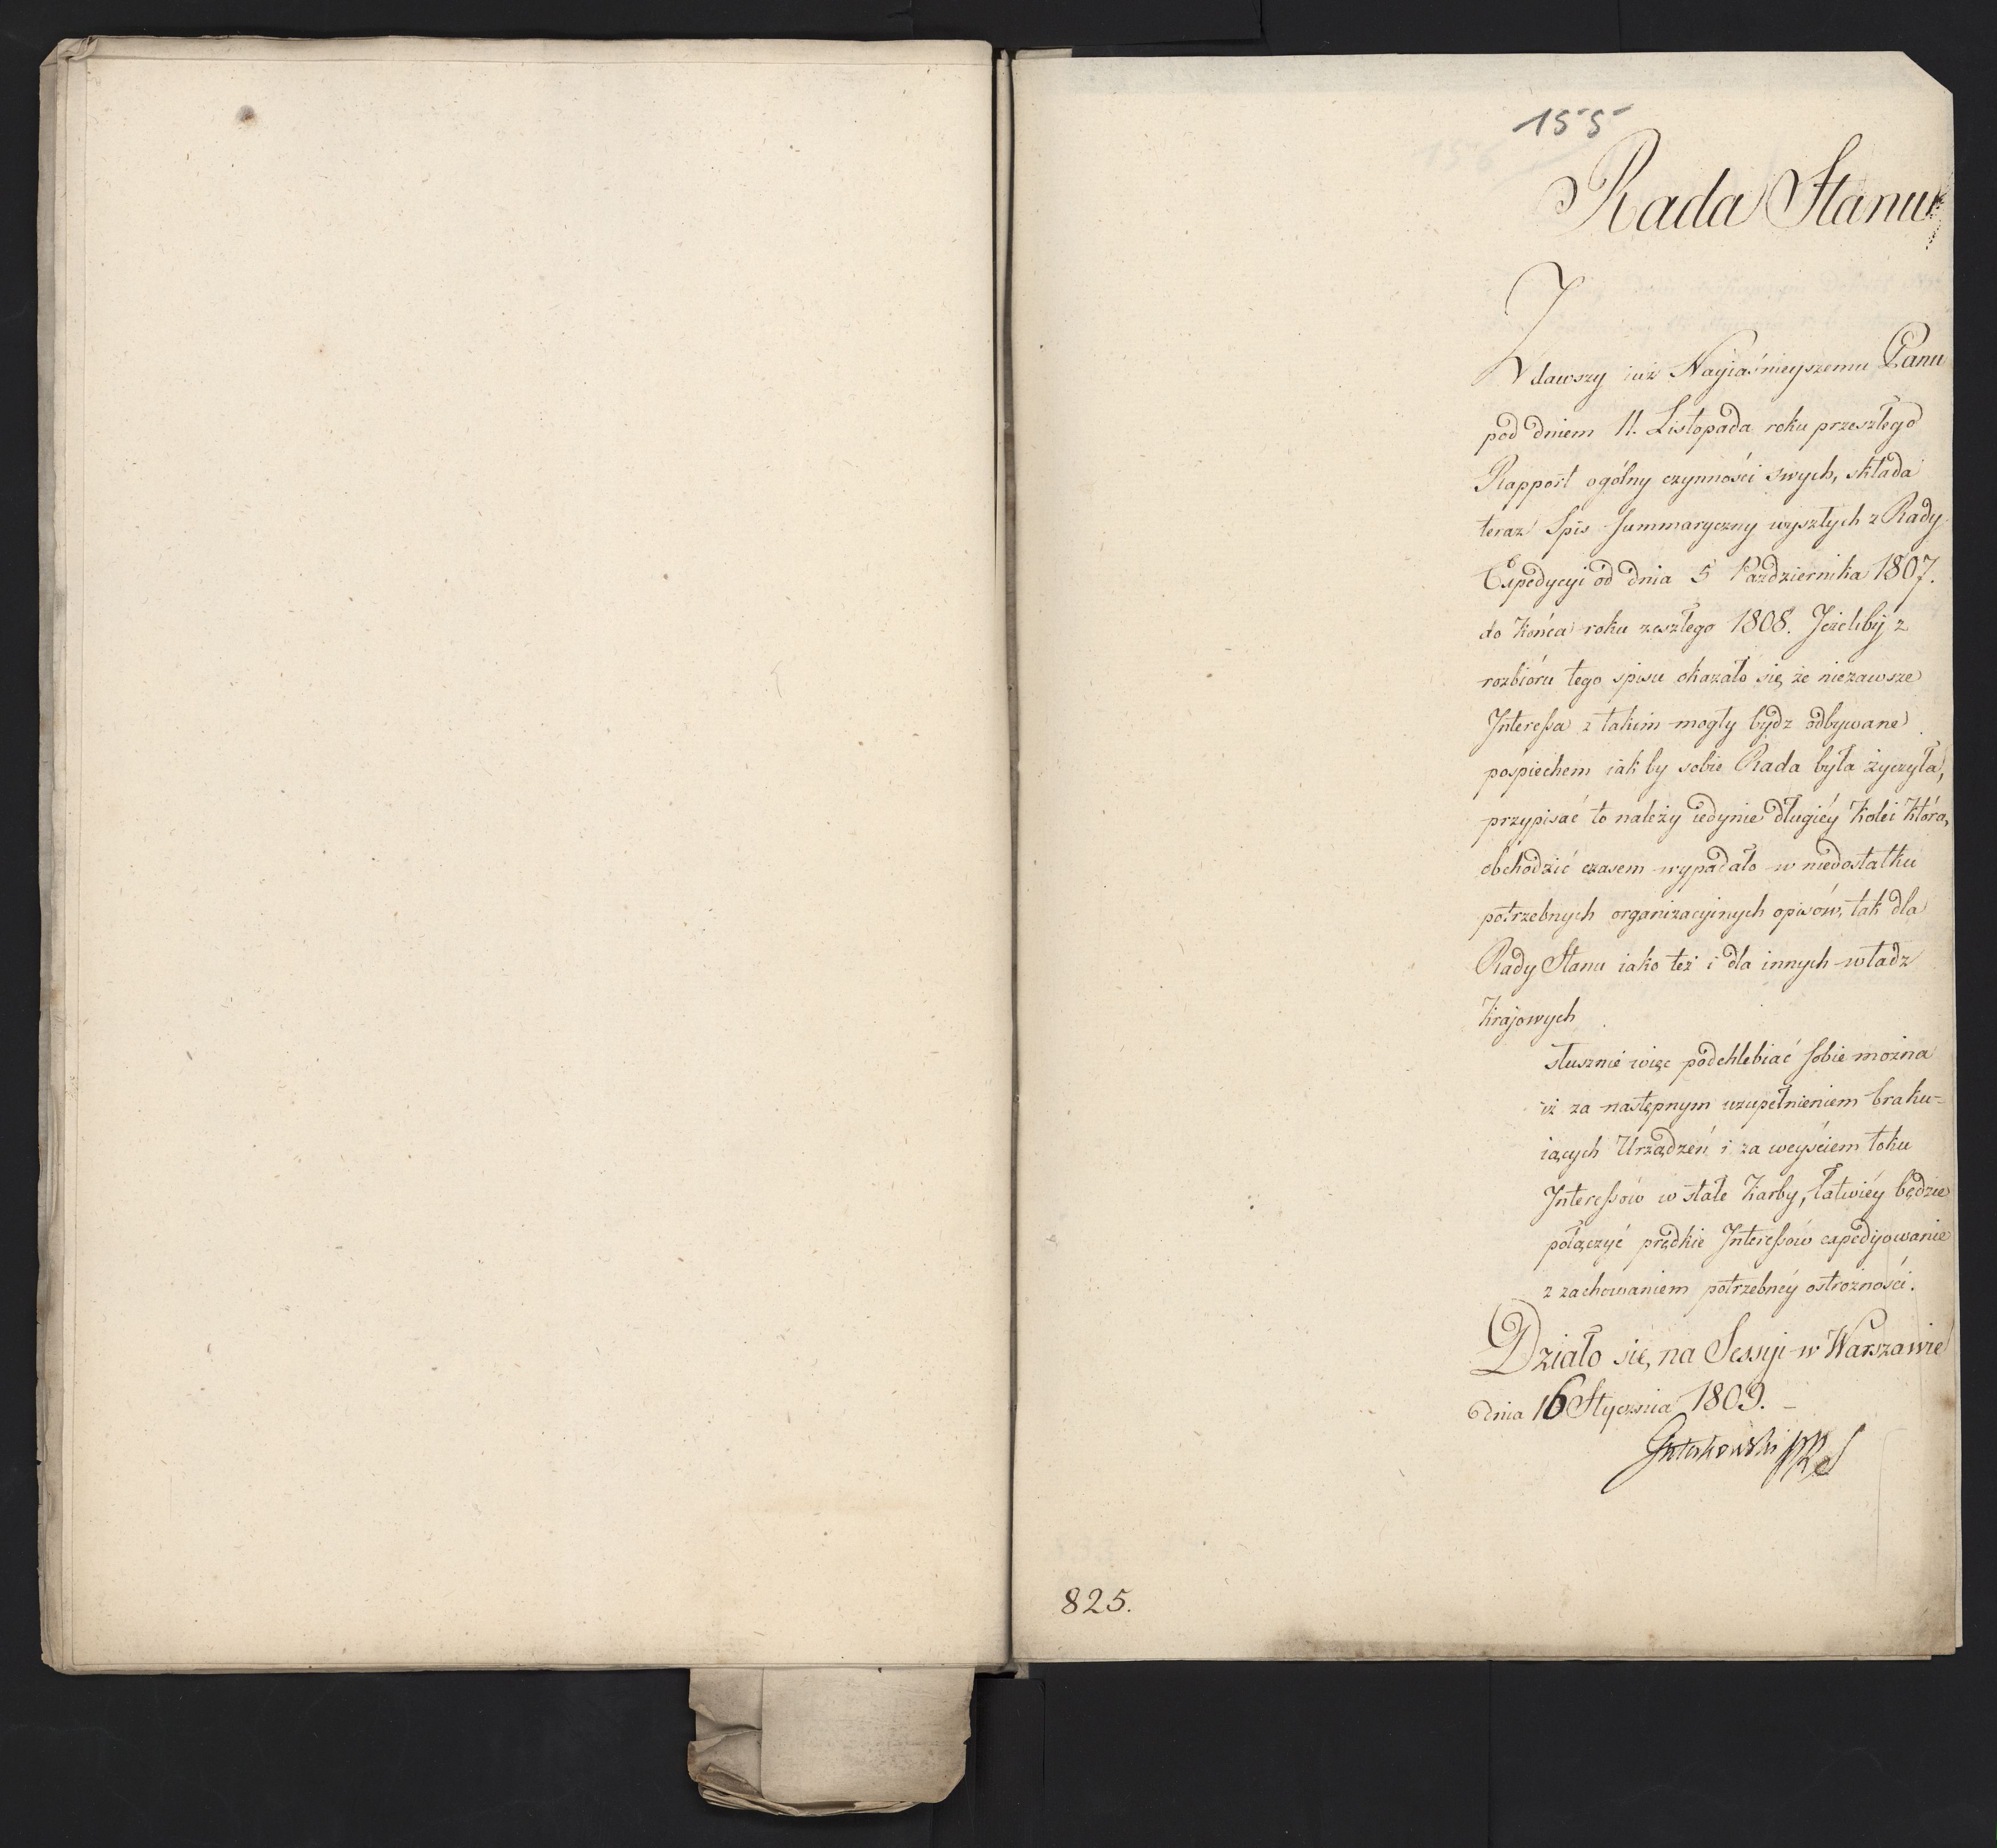 155
Rada Stanu
Zdawszy iuż Nayiaśnieyszemu Panu
pod dniem 11. Listopada roku przeszłego
Rapport ogólny czynności swych, składa
teraz Spis summaryczny wyszłych z Rady
Expedycyi od dnia 5 Pazdziernika 1807.
do Końca roku zeszłego 1808. Jeżeliby z
rozbióru tego spisu okazało się, że niezawsze
Interessa z takim mogły bydz odbywane
pospiechem iak by sobie Rada była życzyła,
przypisać to należy iedynie długiéy Kolei Którą
obchodzić czasem wypadało w niedostatku
potrzebnych organizacyinych opisów, tak dla
Rady Stanu iako też i dla innych władz
Krajowych
słusznie więc podchlebiać sobie można
iż za następnym uzupełnieniem braku-
iących Urządzeń i za weyściem toku
Interessów w stałe Karby, łatwiéy będzie
połączyć prędkie Interessów expedyowanie
z zachowaniem potrzebnéy ostrożności.
Działo się na Sessyi w Warszawie
dnia 16 Stycznia 1809.
Gutakowski PRS
825.